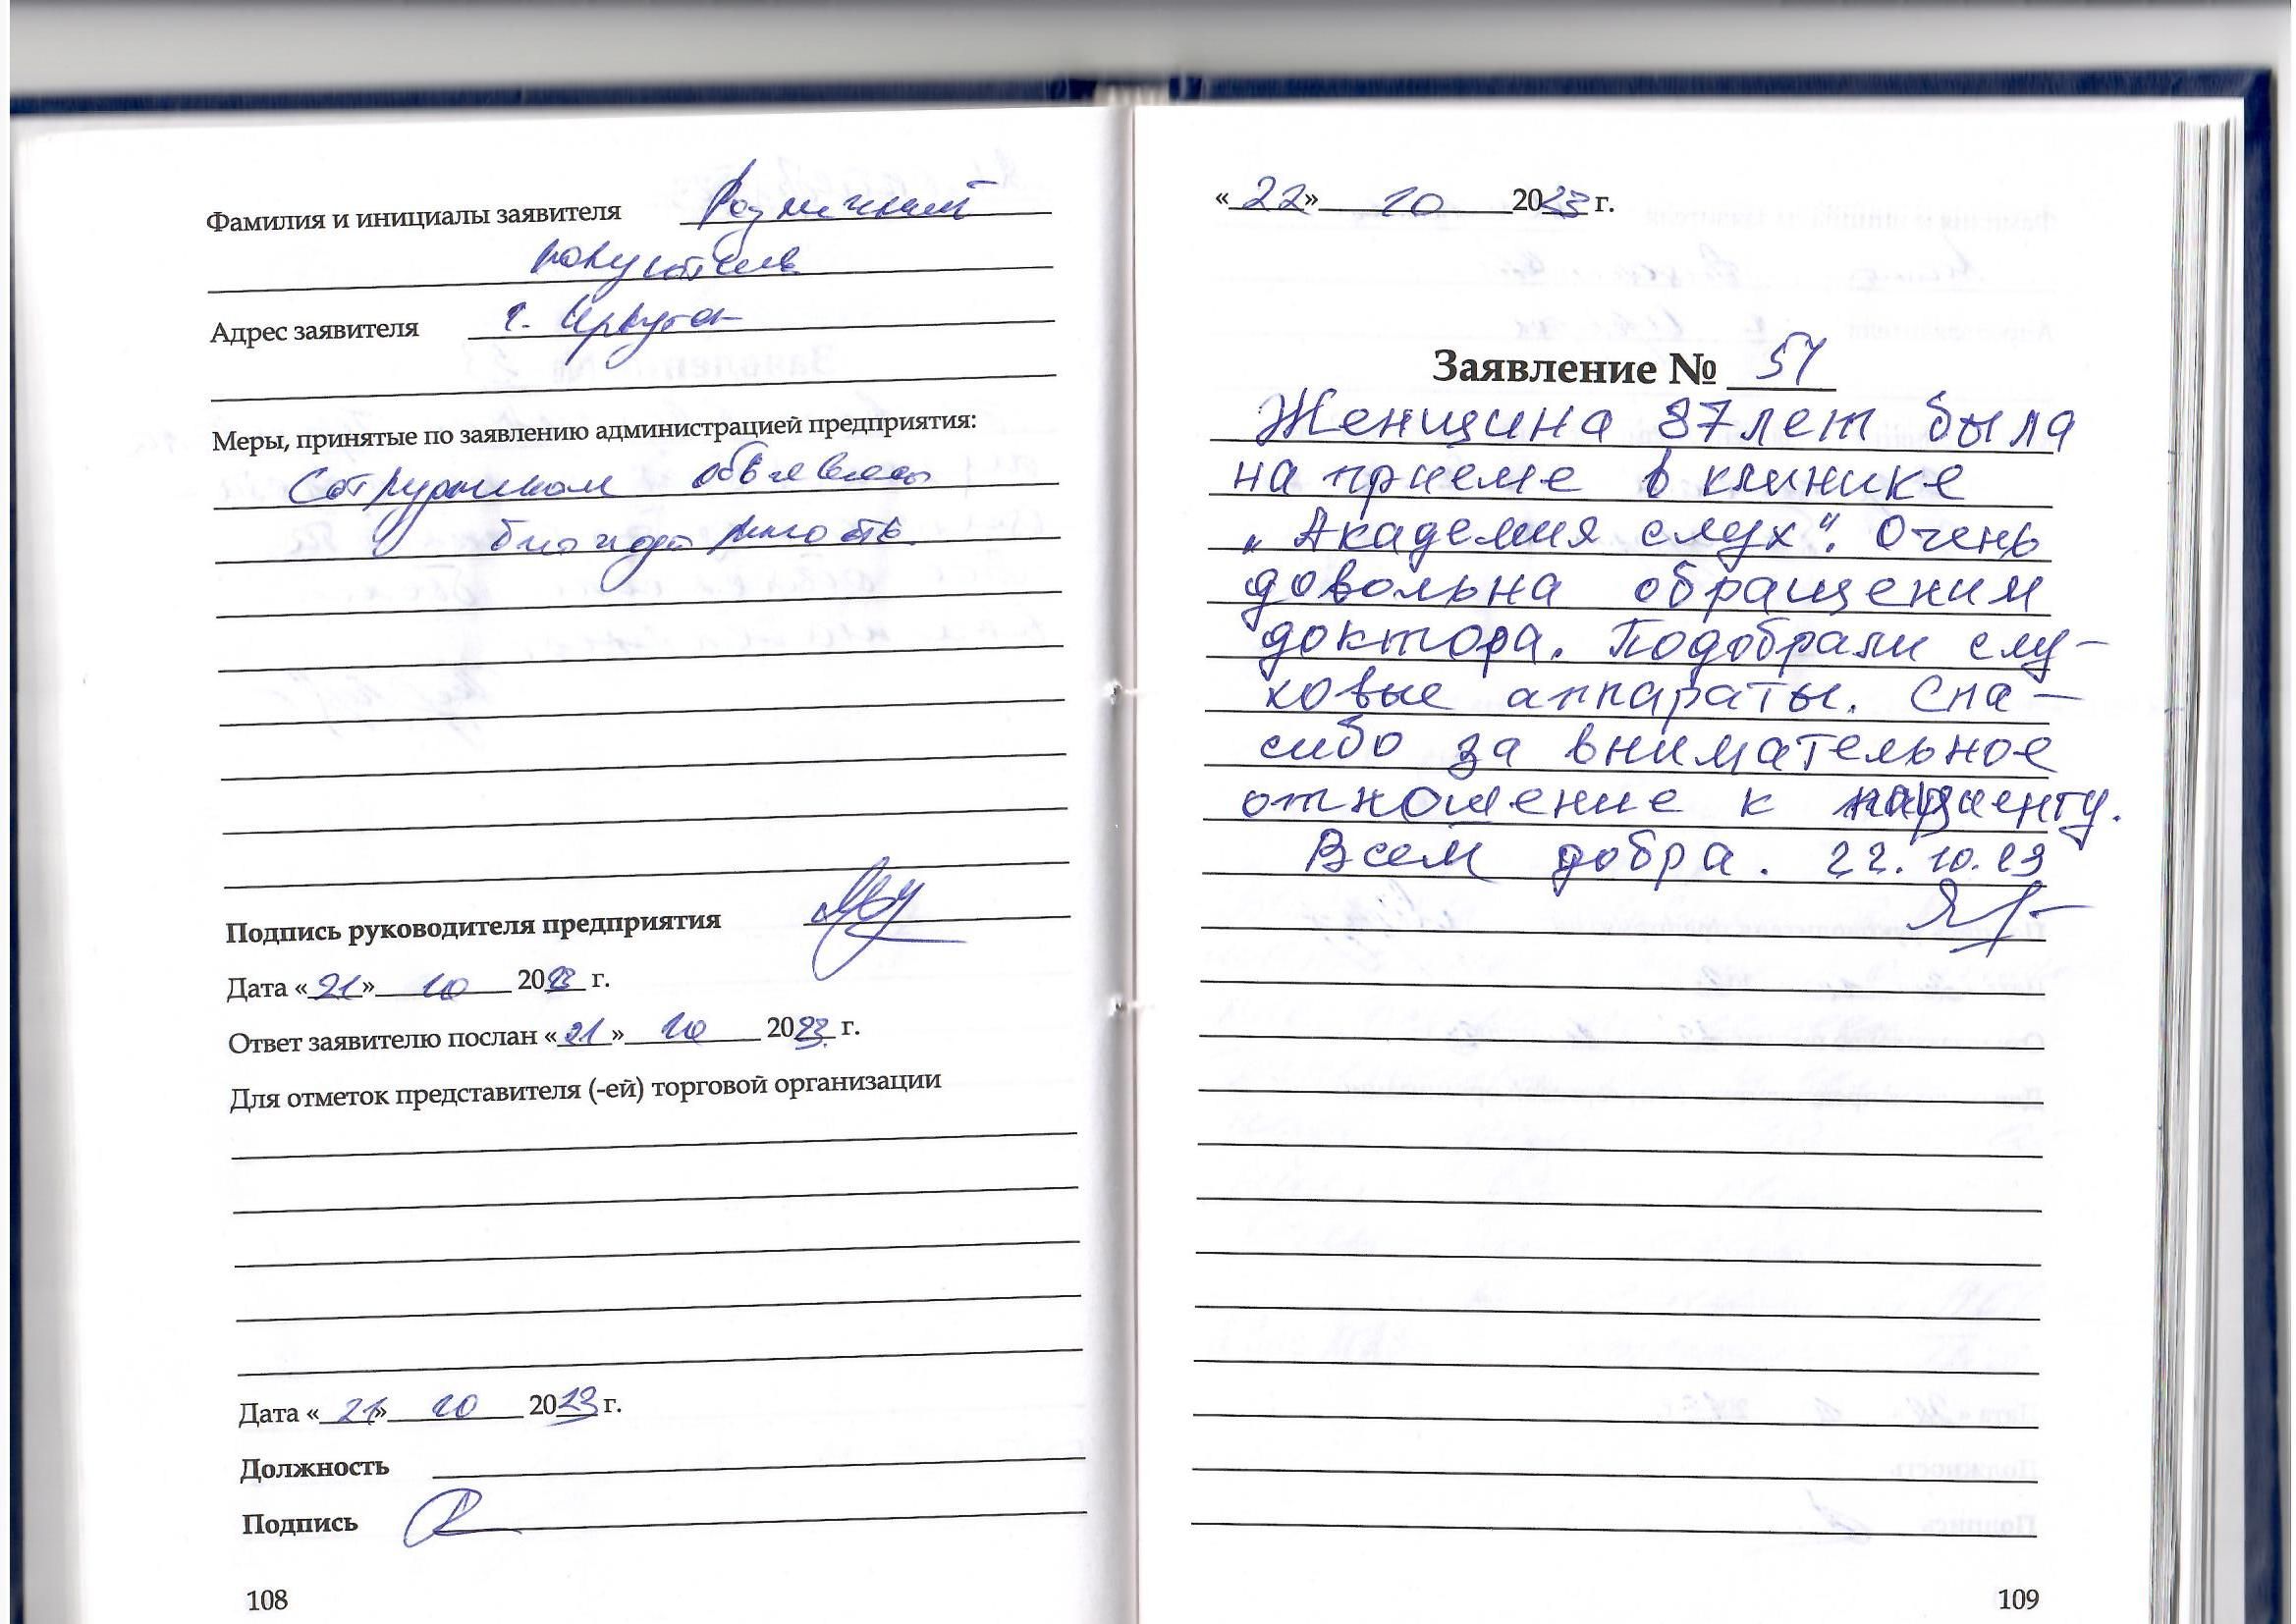 Фамилия и инициалы заявителя Розничный
покупатель
Адрес заявителя г. Иркутск
Меры, принятые по заявлению администрацией предприятия:
Сотрудникам объявлена
благодарность.
Подпись руководителя предприятия
Дата «21» 10 2023 г.
Ответ заявителю послан «21» 10 2023 г.
Для отметок представителя (-ей) торговой организации
Дата «21» 10 2023 г.
Должность
Подпись
108
«22» 10 2023 г.
Заявление № 57
Женщина 87 лет была
на приеме в клинике
„Академия слух“. Очень
довольна обращеним
доктора. Подобрали слу-
ховые аппараты. Спа-
сибо за внимательное
отношение к пациенту.
Всем добра. 22.10.23
109